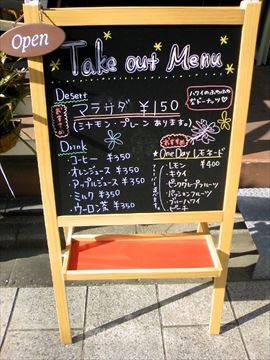 Open
Take out Menu
ハワイのふわふわ
なドーナッツ♡
Desert
おすすめ
マラサダ ¥150
(シナモン・プレーン あります。)
Drink
・コーヒー ¥350
・オレンジジュース ¥350
・アップルジュース ¥350
・ミルク ¥350
・ウーロン茶 ¥350
おすすめ
★One Day レモネード
¥400
・レモン
・キウイ
・ピンクグレープフルーツ
・パッションフルーツ
・ブルーハワイ
・ピーチ